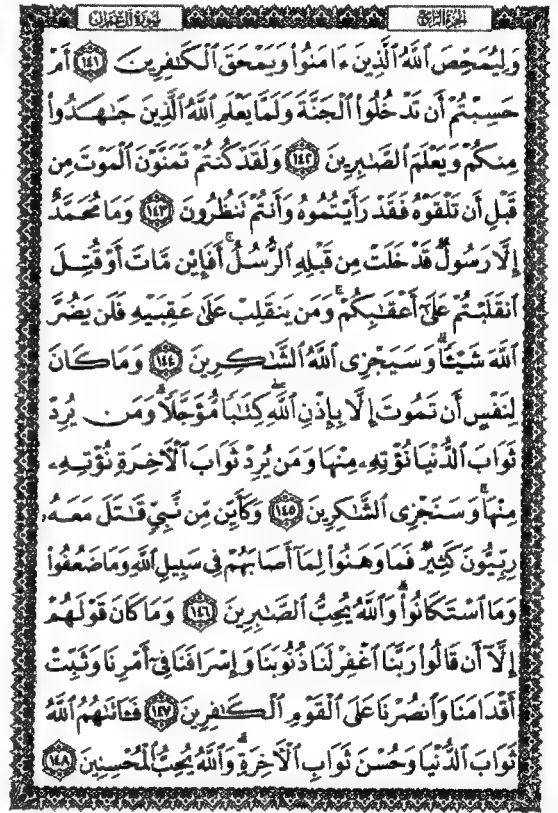 الجزء الرابع
سورة آل عمران
وَلِيُمَحِّصَ ٱللَّهُ ٱلَّذِينَ ءَامَنُوا۟ وَيَمْحَقَ ٱلْكَٰفِرِينَ ١٤١ أَمْ
حَسِبْتُمْ أَن تَدْخُلُوا۟ ٱلْجَنَّةَ وَلَمَّا يَعْلَمِ ٱللَّهُ ٱلَّذِينَ جَٰهَدُوا۟
مِنكُمْ وَيَعْلَمَ ٱلصَّٰبِرِينَ ١٤٢ وَلَقَدْ كُنتُمْ تَمَنَّوْنَ ٱلْمَوْتَ مِن
قَبْلِ أَن تَلْقَوْهُ فَقَدْ رَأَيْتُمُوهُ وَأَنتُمْ تَنظُرُونَ ١٤٣ وَمَا مُحَمَّدٌ
إِلَّا رَسُولٌ قَدْ خَلَتْ مِن قَبْلِهِ ٱلرُّسُلُ ۚ أَفَإِي۟ن مَّاتَ أَوْ قُتِلَ
ٱنقَلَبْتُمْ عَلَىٰٓ أَعْقَٰبِكُمْ ۚ وَمَن يَنقَلِبْ عَلَىٰ عَقِبَيْهِ فَلَن يَضُرَّ
ٱللَّهَ شَيْـًٔا ۗ وَسَيَجْزِى ٱللَّهُ ٱلشَّٰكِرِينَ ١٤٤ وَمَا كَانَ
لِنَفْسٍ أَن تَمُوتَ إِلَّا بِإِذْنِ ٱللَّهِ كِتَٰبًا مُّؤَجَّلًا ۗ وَمَن يُرِدْ
ثَوَابَ ٱلدُّنْيَا نُؤْتِهِۦ مِنْهَا وَمَن يُرِدْ ثَوَابَ ٱلْءَاخِرَةِ نُؤْتِهِۦ
مِنْهَا ۚ وَسَنَجْزِى ٱلشَّٰكِرِينَ ١٤٥ وَكَأَيِّن مِّن نَّبِىٍّ قَٰتَلَ مَعَهُۥ
رِبِّيُّونَ كَثِيرٌ فَمَا وَهَنُوا۟ لِمَآ أَصَابَهُمْ فِى سَبِيلِ ٱللَّهِ وَمَا ضَعُفُوا۟
وَمَا ٱسْتَكَانُوا۟ ۗ وَٱللَّهُ يُحِبُّ ٱلصَّٰبِرِينَ ١٤٦ وَمَا كَانَ قَوْلَهُمْ
إِلَّآ أَن قَالُوا۟ رَبَّنَا ٱغْفِرْ لَنَا ذُنُوبَنَا وَإِسْرَافَنَا فِىٓ أَمْرِنَا وَثَبِّتْ
أَقْدَامَنَا وَٱنصُرْنَا عَلَى ٱلْقَوْمِ ٱلْكَٰفِرِينَ ١٤٧ فَـَٔاتَىٰهُمُ ٱللَّهُ
ثَوَابَ ٱلدُّنْيَا وَحُسْنَ ثَوَابِ ٱلْءَاخِرَةِ ۗ وَٱللَّهُ يُحِبُّ ٱلْمُحْسِنِينَ ١٤٨